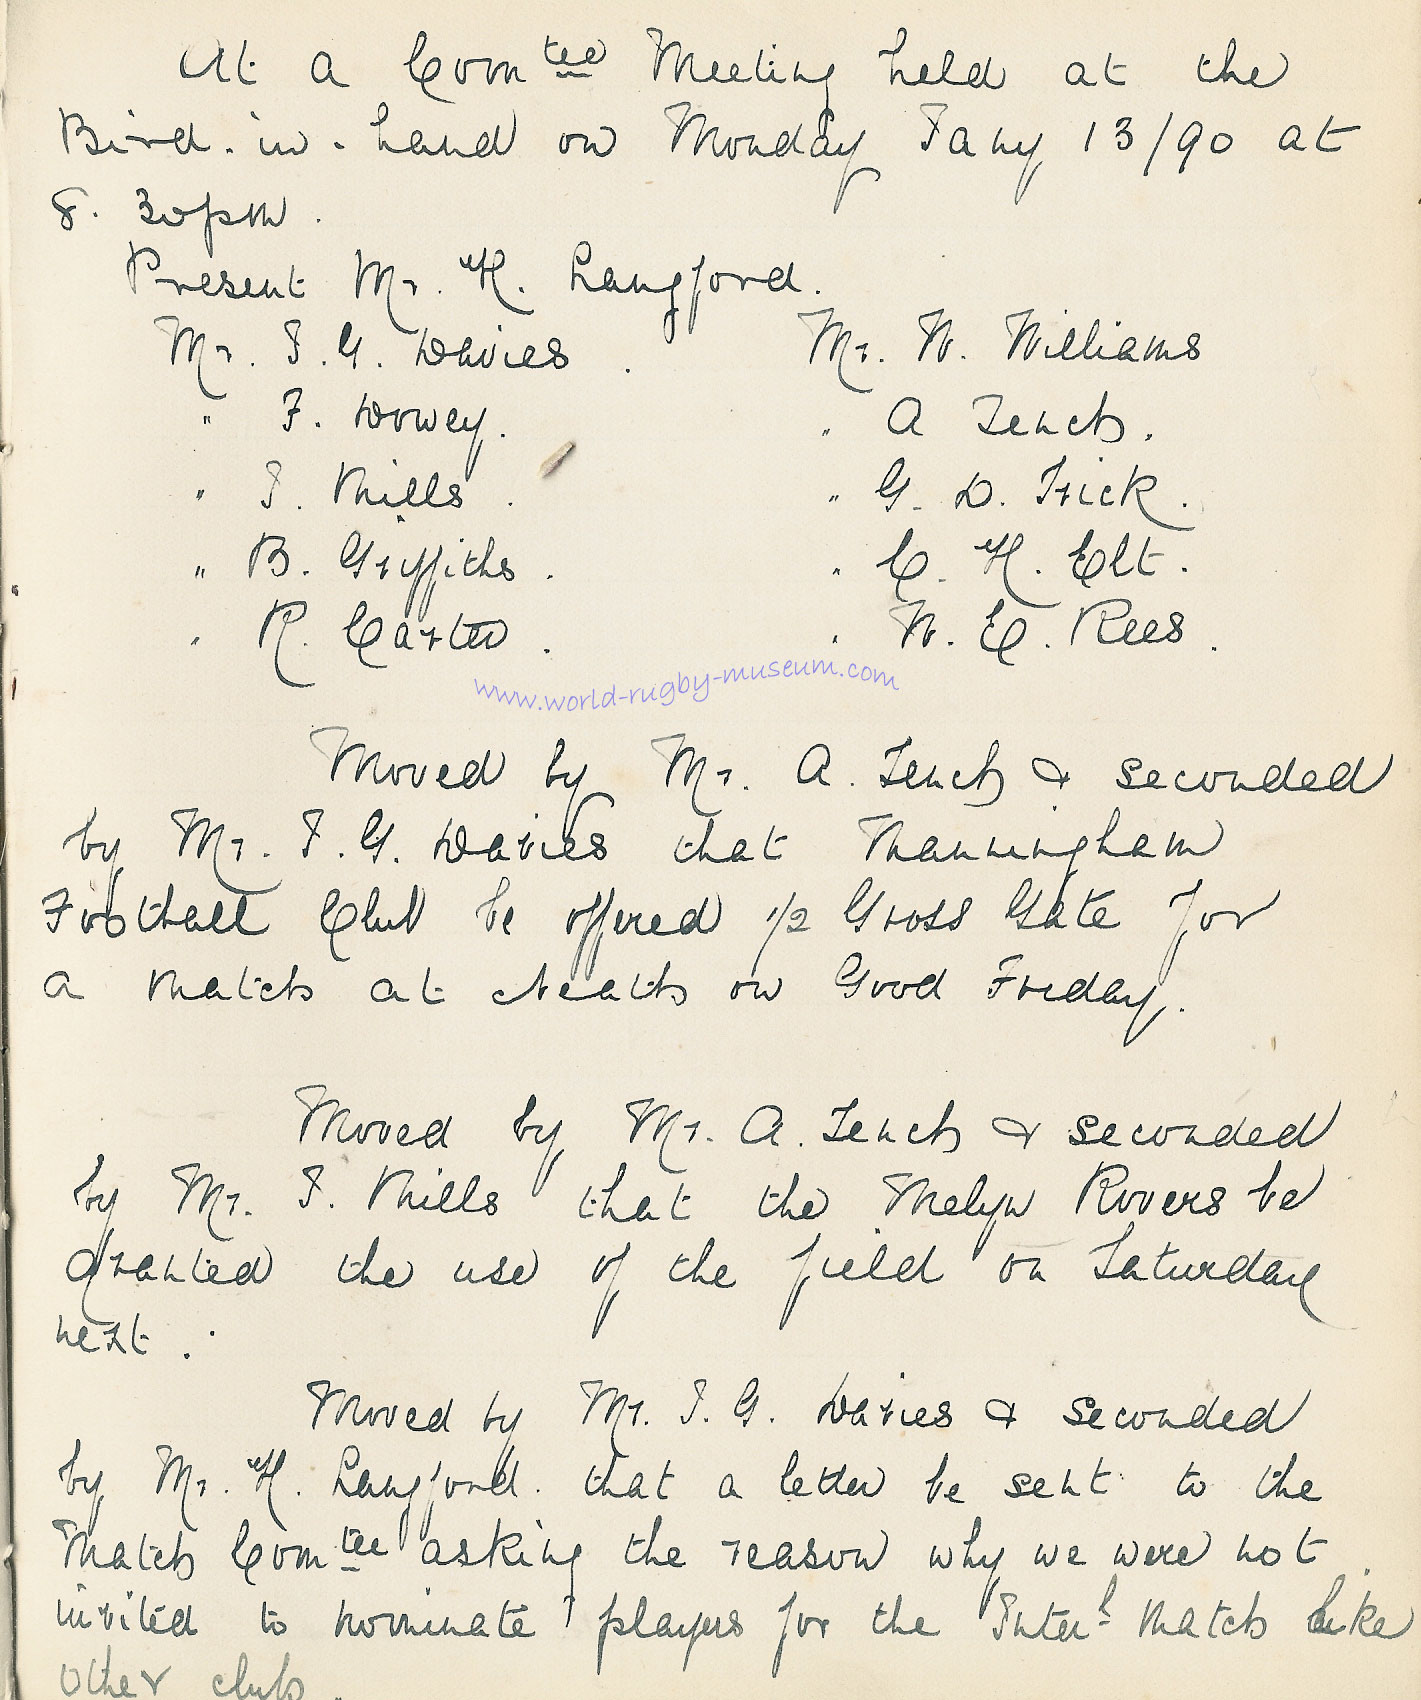 At a Comtee Meeting held at the
Bird-in-hand on Monday Jany 13/90 at
8.30pm.
Present Mr. H. Langford.
Mr. J.G. Davies. Mr. W. Williams
" F. Dowey. " A Tench.
" J. Mills. " G. D. Trick.
" B. Griffiths. " C. H. Elt.
" R. Carter. " W. E. Rees.
www.world-rugby-museum.com
Moved by Mr. A. Tench & seconded
by Mr. J.G. Davies that Manningham
Football Club be offered 1/2 Gross Gate for
a Match at Neath on Good Friday.
Moved by Mr. A. Tench & seconded
by Mr. J. Mills that the Melyn Rovers be
granted the use of the field on Saturday
next.
Moved by Mr. J. G. Davies & seconded
by Mr. H. Langford. that a letter be sent to the
Match Comtee asking the reason why we were not
invited to nominate players for the Interl Match like
other clubs.